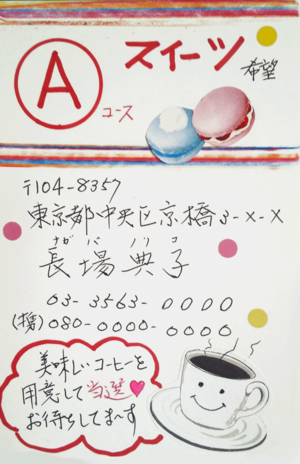 スイーツ
希望
A
コース
〒104-8357
東京都中央区京橋3-X-X
ながバ ノリコ
長場 典子
03-3563-0000
(携) 080-0000-0000
美味しいコーヒーを
用意して当選♥
お待ちしてま〜す